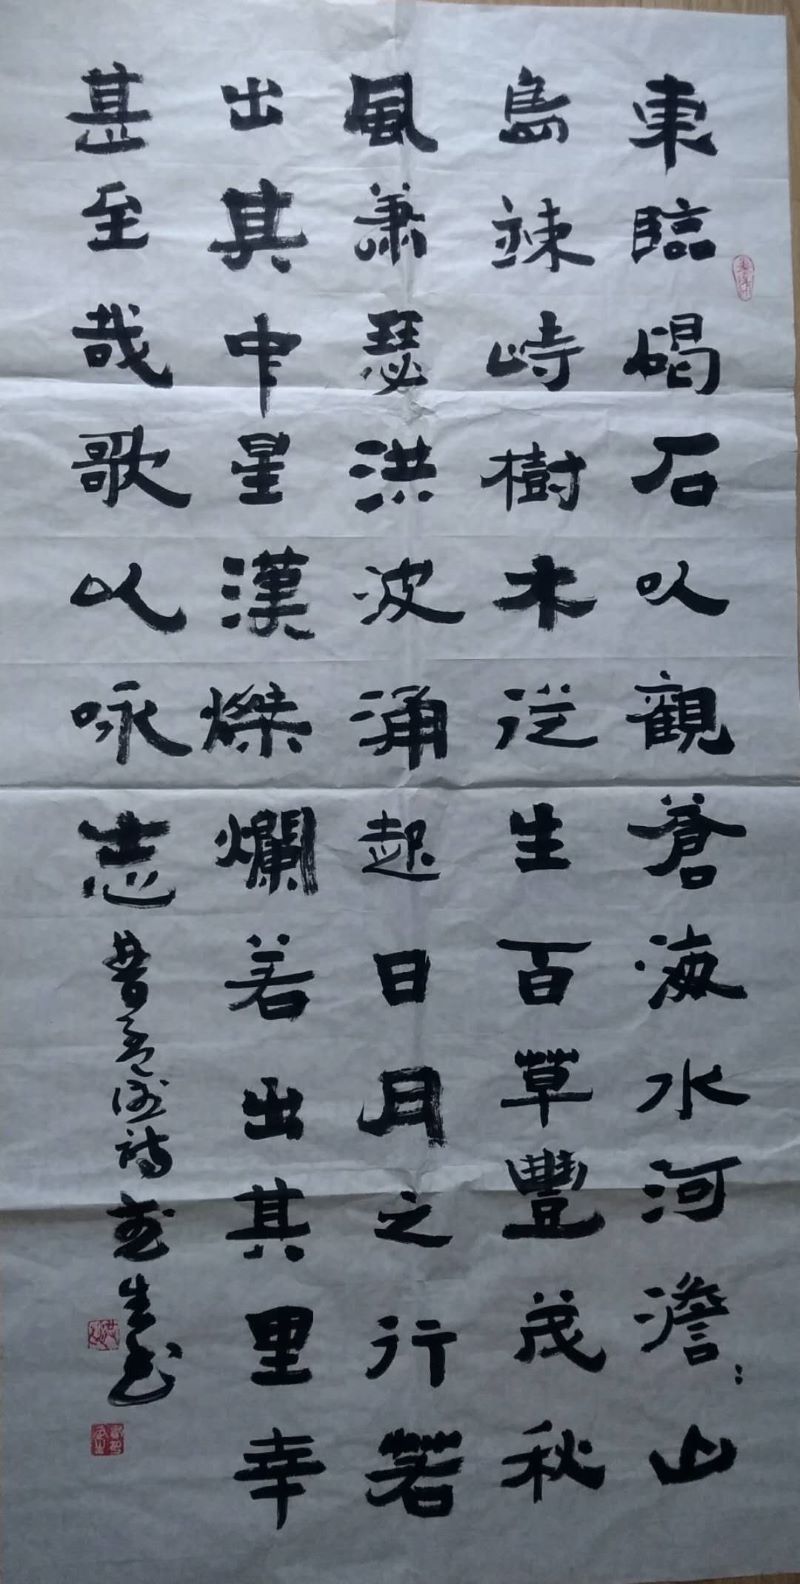 東臨碣石以觀蒼海水河澹:山
島竦峙樹木從生百草豐茂秋
風蕭瑟洪波涌起日月之行若
出其中星漢燦爛若出其里幸
甚至哉歌以咏志
詩
生书